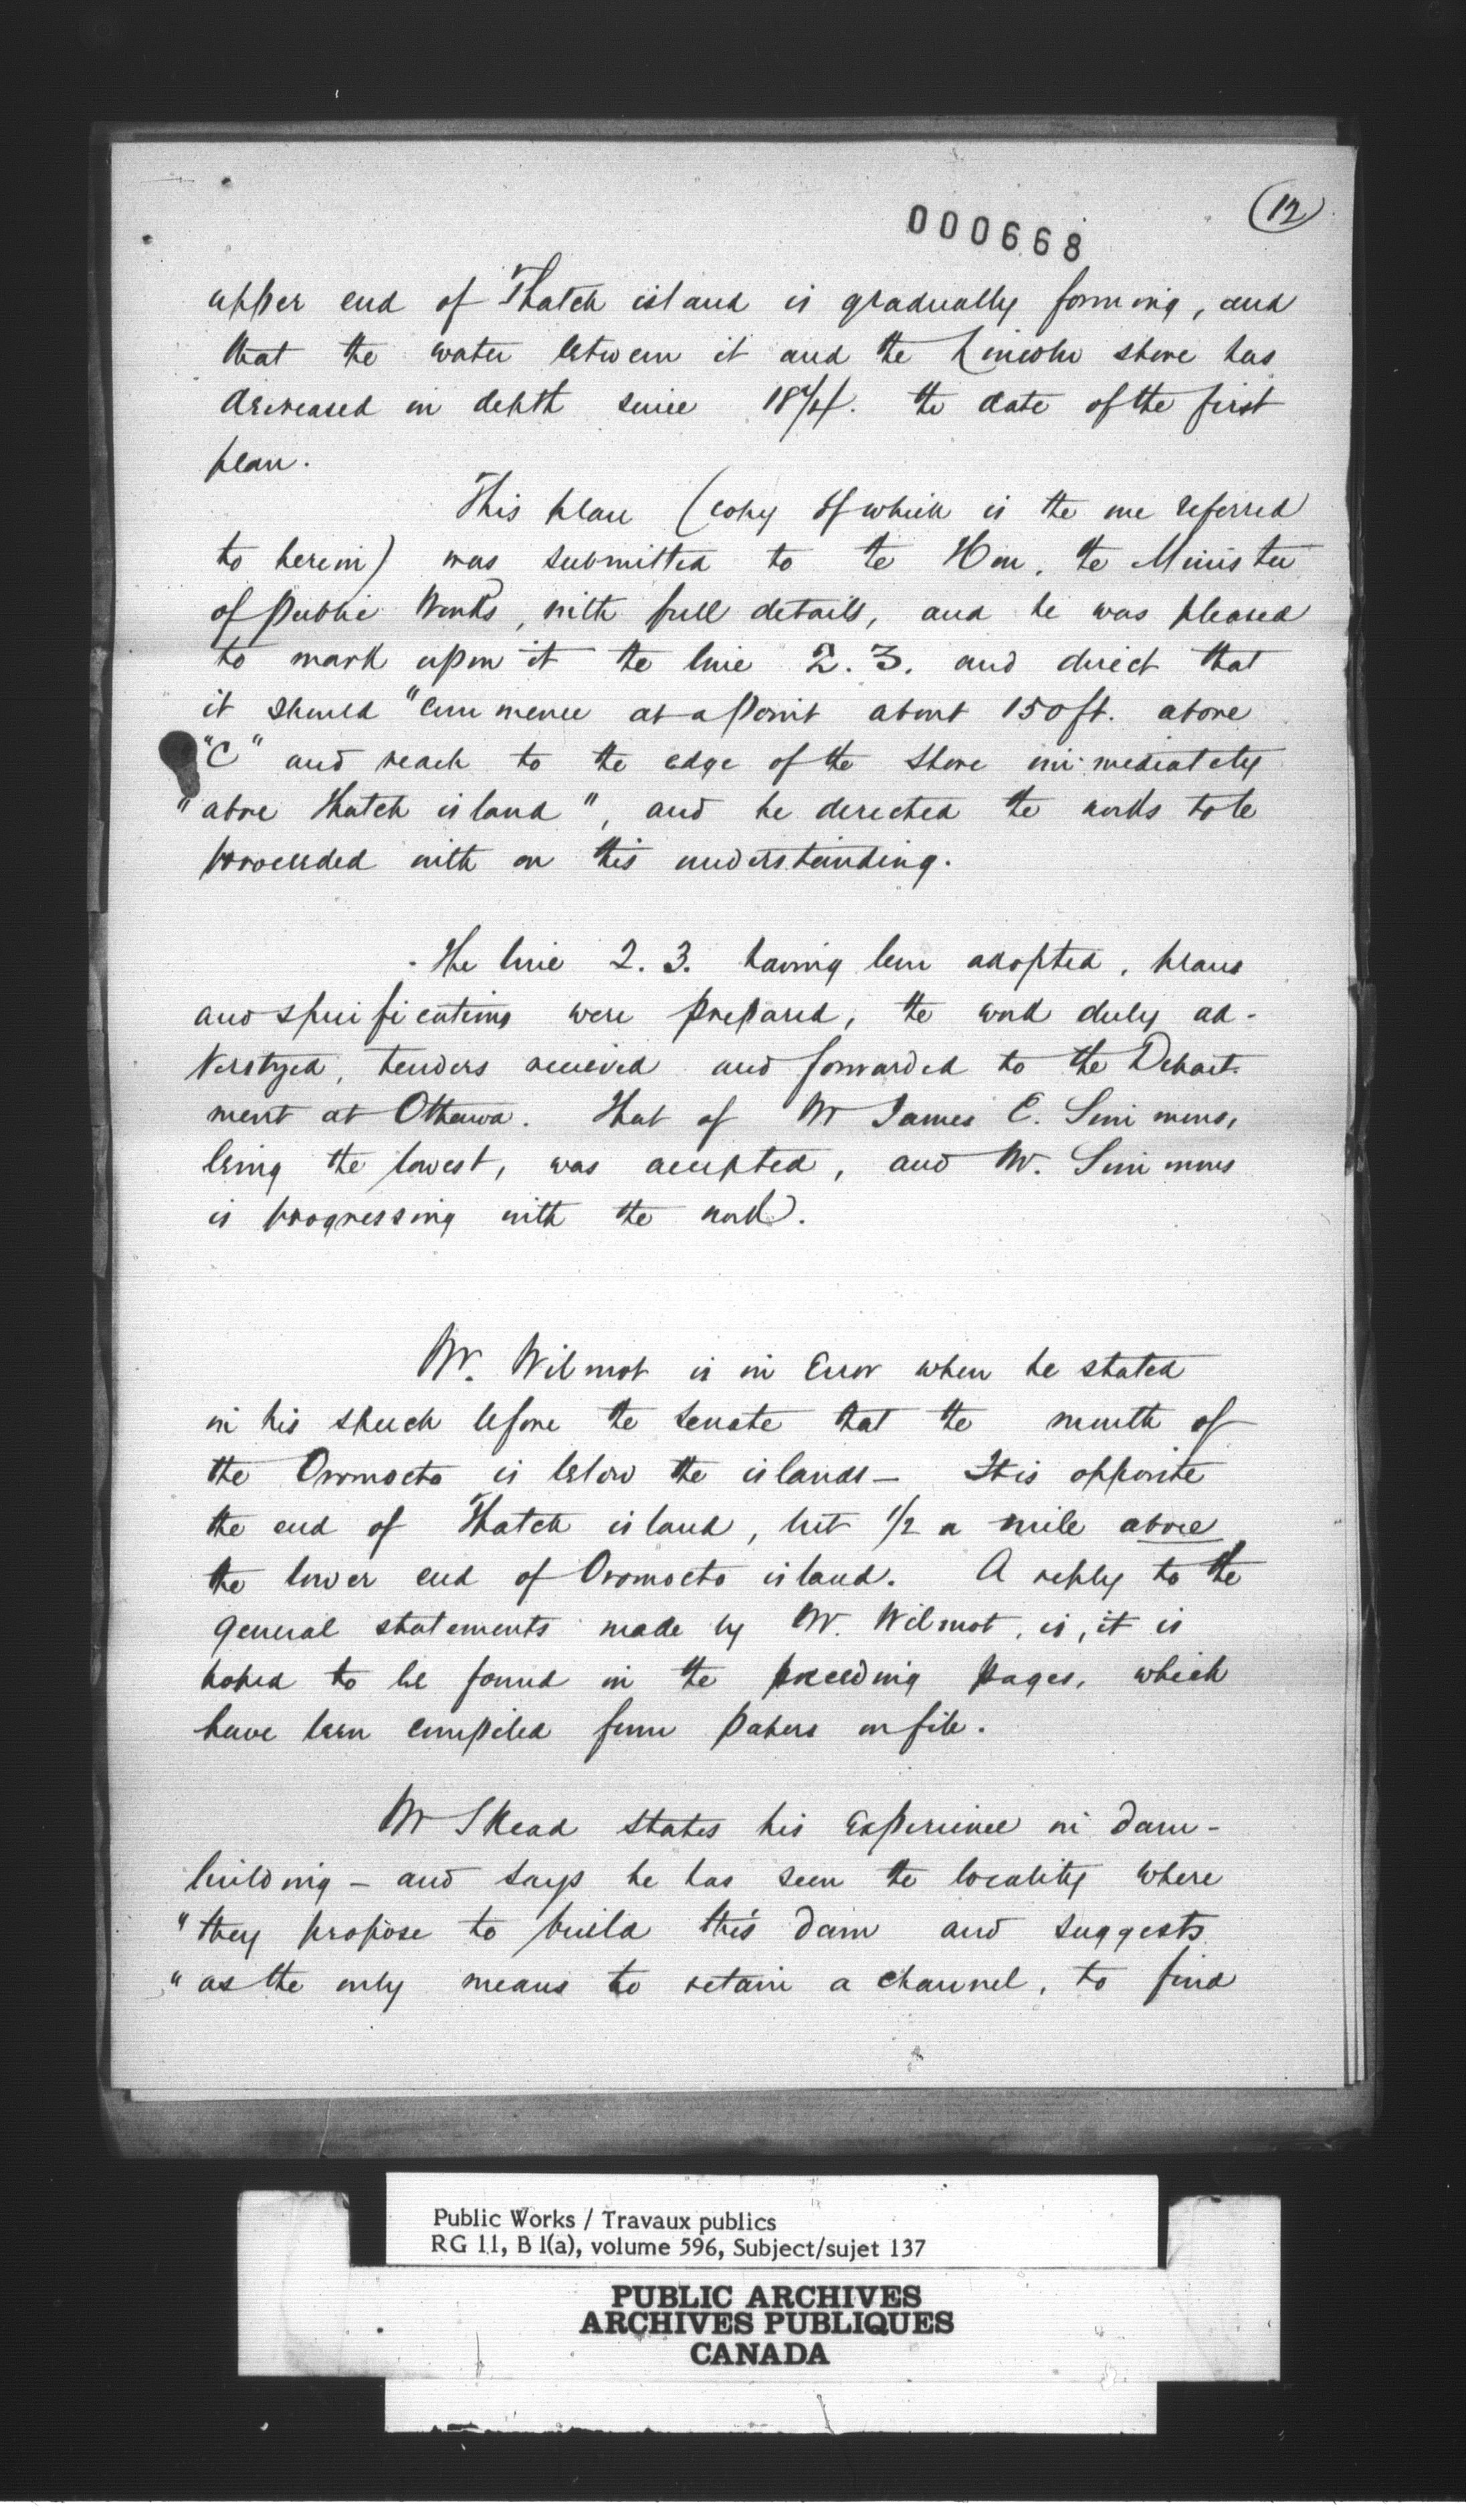 000668
(12)
upper end of Thatch island is gradually forming, and
that the water between it and the Lincoln shore has
decreased in depth since the date of the first
plan.
This plan (copy of which is the one referred
to herein) was submitted to the Hon. the Minister
of Public Works, with full details, and he was pleased
to mark upon it the line 2.3. and direct that
it should "commence at a point about 150 ft. above
"C" and reach to the edge of the shore immediately
"above Thatch island", and he directed the works to be
proceeded with on this understanding.
The line 2.3. having been adopted, plans
and specifications were prepared, the work duly ad-
vertized, tenders received and forwarded to the Depart-
ment at Ottawa. That of Mr James E. Simmons,
being the lowest, was accepted, and Mr. Simmons
is progressing with the work.
Mr. Wilmot is in Error when he stated
in his speech before the Senate that the mouth of
the Oromocto is below the islands - It is opposite
the end of Thatch island, but 1/2 a mile above
the lower end of Oromocto island. A reply to the
general statements made by Mr. Wilmot, is, it is
hoped to be found in the preceding pages, which
have been compiled from papers on file.
Mr Skead states his Experience in dam-
building - and says he has seen the locality where
"they propose to build this dam and suggests
"as the only means to retain a channel, to find
Public Works / Travaux publics
RG 11, B 1(a), volume 596, Subject/sujet 137
PUBLIC ARCHIVES
ARCHIVES PUBLIQUES
CANADA